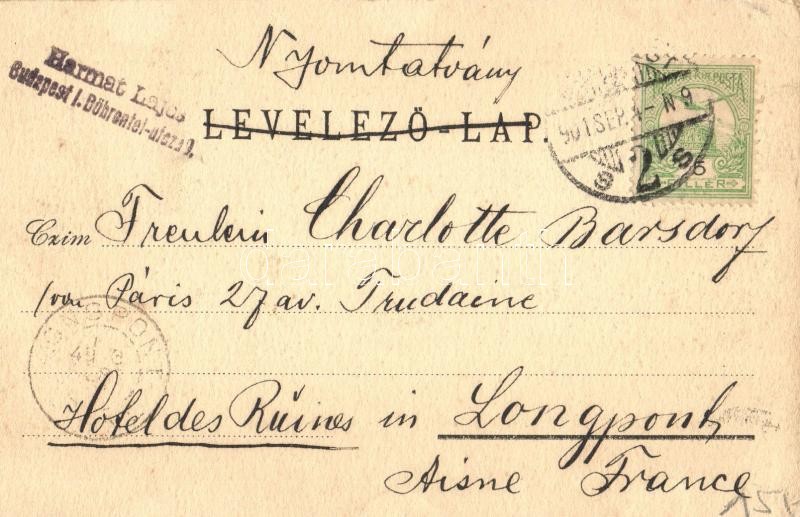 Nyomtatvány
Harmat Lajos
Budapest I. Döbrentei-utcza 9.
LEVELEZŐ-LAP.
901 SEP. 4 - N 9
2
Czim Freulein Charlotte Barsdorf
(von Páris 27 av. Trudaine
LONGPONT
Hotel des Ruines in Longpont
Aisne France